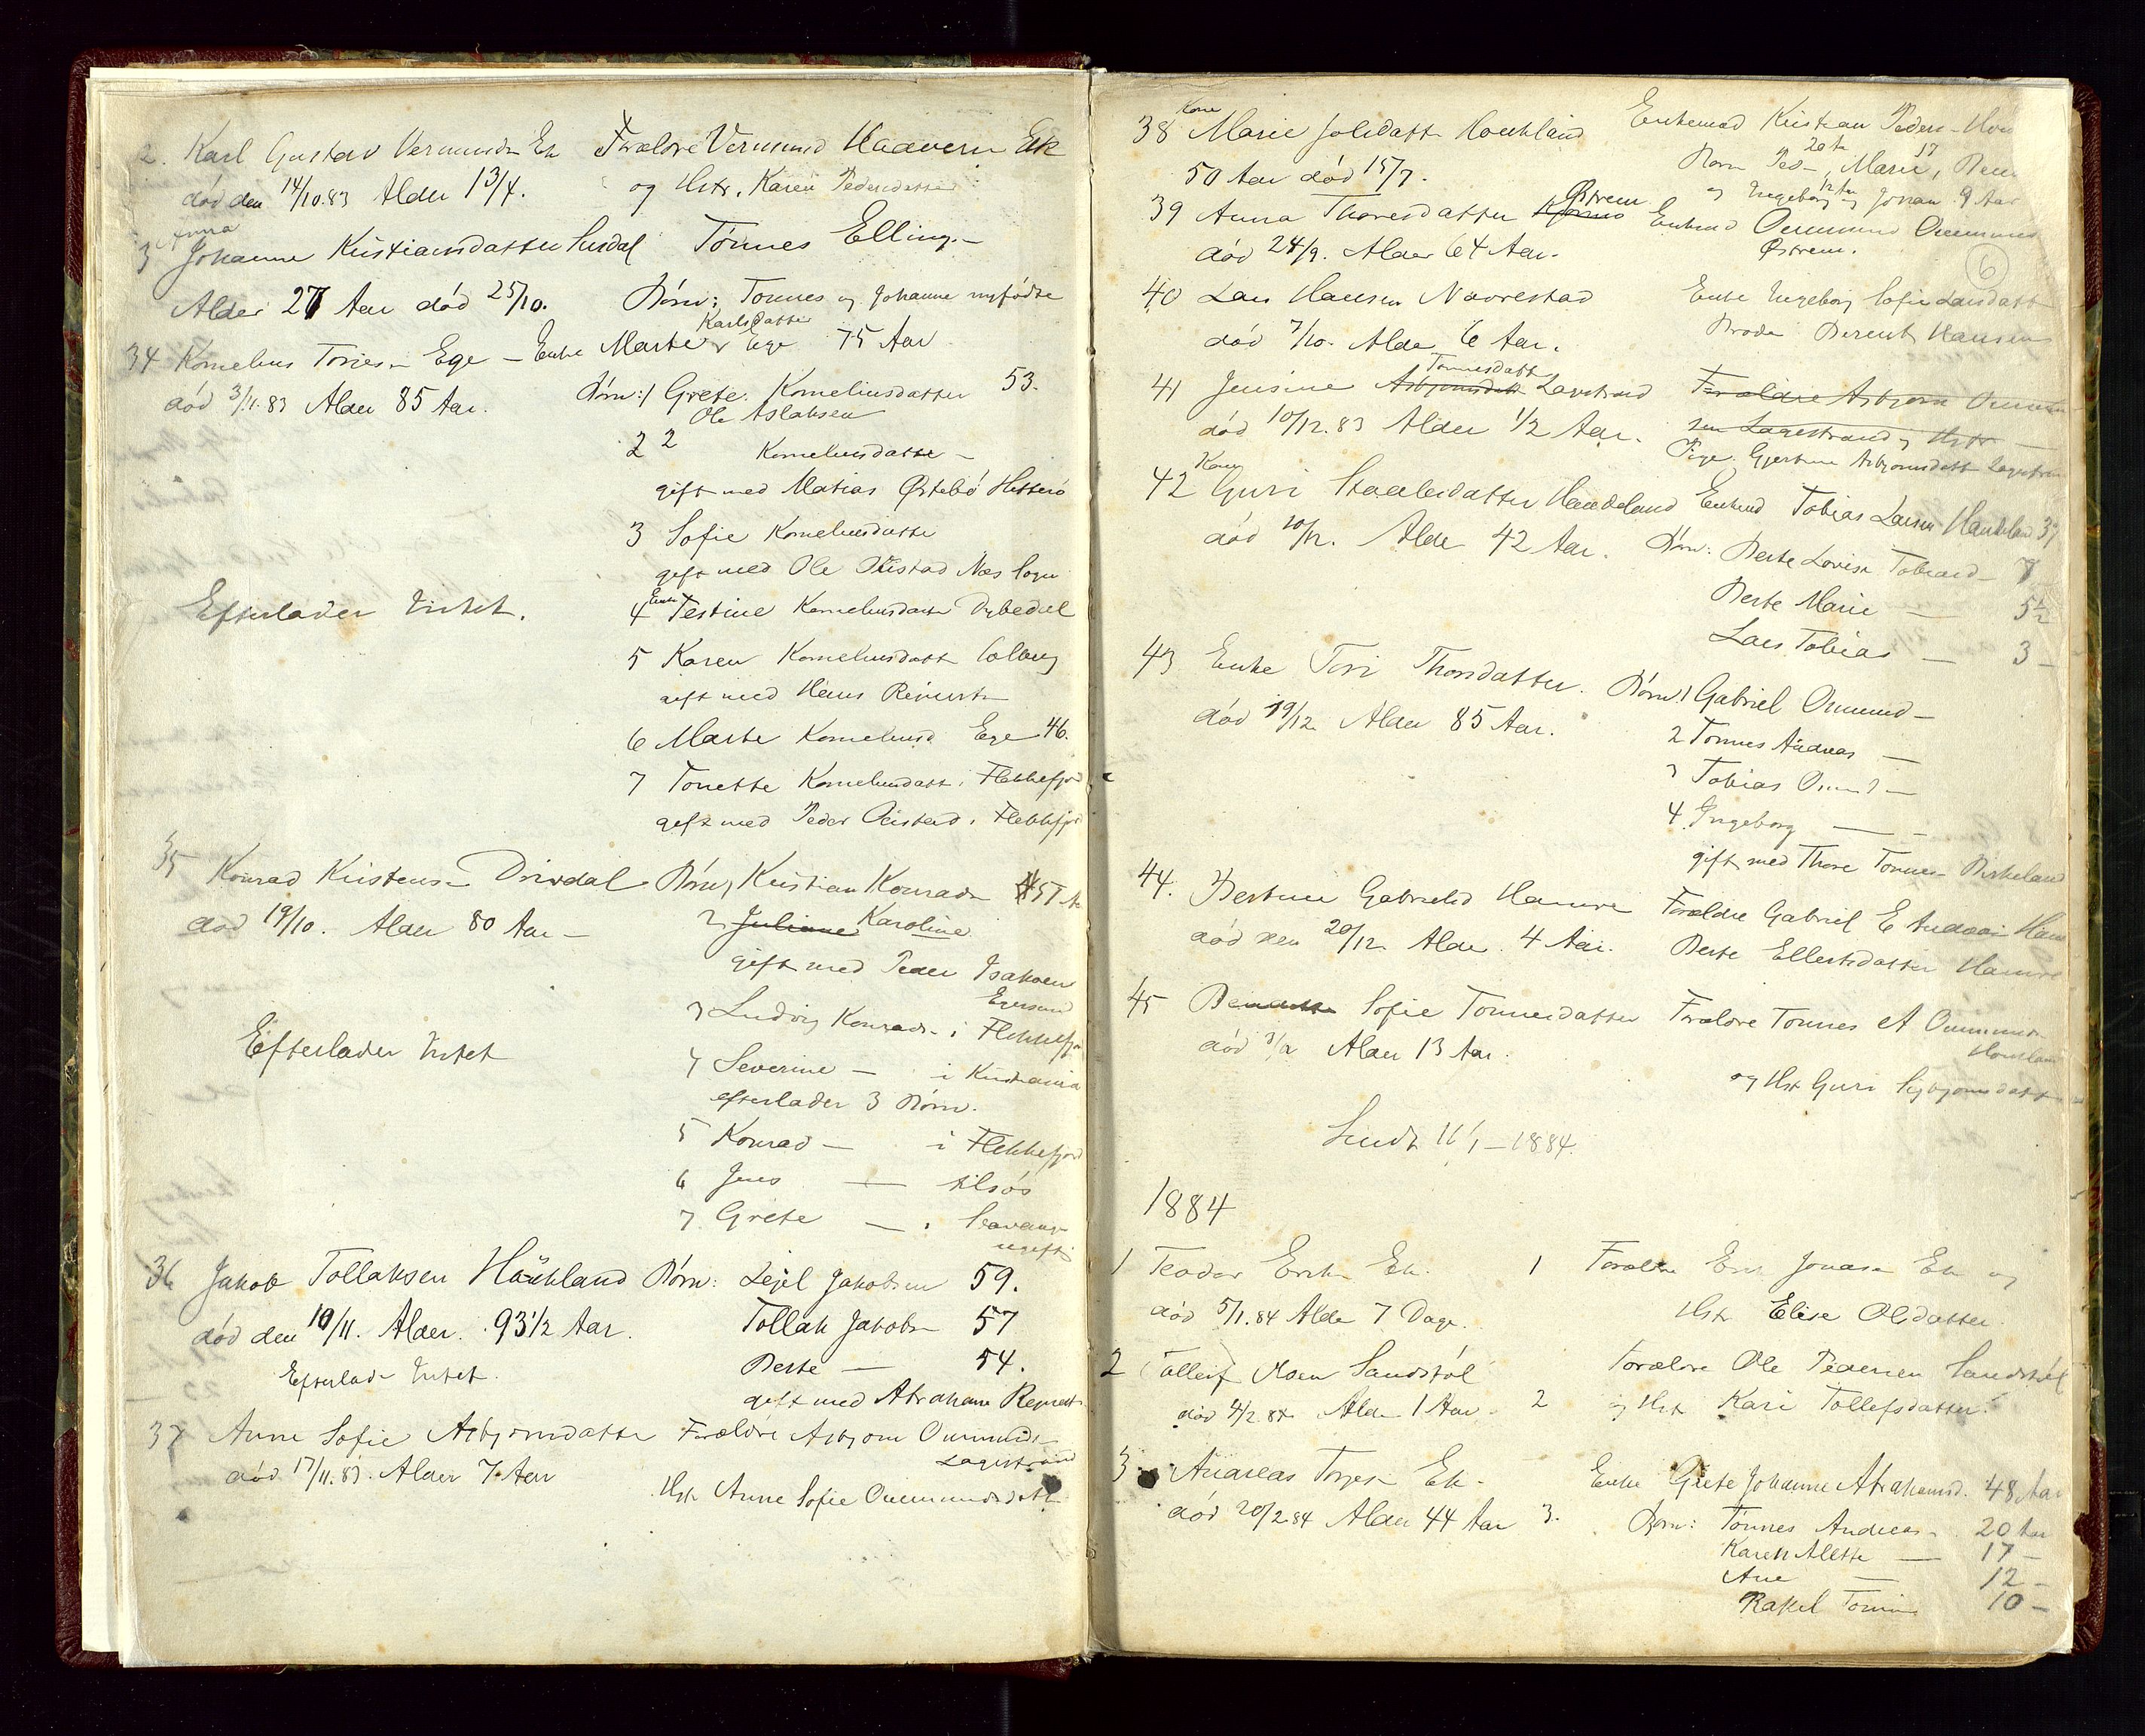 2. Karl Gustav Vermunds Ek Forældre Vermund Haavers Ek
død den 14/10.83 Alder 1 3/4. og Hstr. Karen Pedersdatter
Anna
3 Johanne Kristiansdatter Surdal Tønnes Ellings-
Alder 27 Aar død 25/10. Børn: Tønnes og Johanne nyfødte
Karlsdatter
34 Kornelius Torjes- Ege - Enke Marte Ege 75 Aar
død 3/11.83 Alder 85 Aar. Børn: 1 Grete. Korneliusdatter 53.
Ole Aslaksen
2 2 Korneliusdatte -
gift med Matias Østebø Hitterø
3 Sofie Korneliusdatte
gift med Ole Næs Sogn
Efterlader Intet. 4 Enke Testine Korneliusdatte Dybedal
5 Karen Korneliusdatt
gift med Hans Reinerts
6 Marte Korneliusd Ege 46.
7 Tonette Korneliusdatt i Flekkefjord
gift med Peder i Flekkefjord
35 Konrad Kristens- Drivdal Børn 1 Kristian Konrads 57
død 19/10. Alder 80 Aar - 2 Juliane Karoline
gift med Peder Isaksen
Egersund
3 Ludvig Konrads- i Flekkefj
Efterlader Intet 4 Severine - i Kristiania
efterlader 3 Børn.
5 Konrad - i Flekkefjord
6 Jens - tilsøs
7. Grete - i Stavanger
ugift
36 Jakob Tollaksen Haukland Børn: Lejel Jakobsen 59.
død den 10/11. Alder. 93 1/2 Aar. Tollak Jakobs- 57
Efterlad- Intet. Berte - 54.
gift med Abraham
37 Anne Sofie Asbjornsdatte Forældre Asbjørn Ommunds-
Lagestrand
død 17/11.83. Alder 7 Aar Hstr Anne Sofie Ommundsdatt
Kone
38 Marie Haukland Enkemand Kristian Peders- Hau
20 Aar 17
50 Aar død 15/7. Børn Ped-, Marie,
12 Aar
og Ingeborg og Jonan 9 Aar
Østrem
39 Anna Thoresdatter Enkemd Ommund Ommunds
død 24/9. Alder 64 Aar. Østrem.
6
40 Lars Hansen Navrestad Enke Ingeborg Sofie Larsdatt
død 7/10. Alder 6 Aar. Broder Berent Hansen
Tønnesdatt
41 Jensine Asbjørnsdatt Lagestrand Forældre Asbjørn Ommun
død 10/12.83 Alder 1/2 Aar. sen Lagestrand og Hstr -
Pige. Gjertine Asbjørnsdatt Lagestran
Kone
42 Guri Staalesdatter Haukeland Enkemd Tobias Larsen Haukelan 39
død 10/12. Alder 42 Aar. Børn: Berte Lovise Tobiasd- 7
Berte Marie - 5 1/2
Lars Tobias - 3 -
43 Enke Tori Thorsdatter. Børn: 1 Gabriel Ommund-
død 19/12 Alder 85 Aar. 2 Tønnes Andreas -
3 Tobias Omm -
4 Ingeborg -
gift med Thore Tønnes- Birkeland
44. Bertine Gabrielsd Hamre Forældre Gabriel E Ham
død den 20/12. Alder. 4 Aar. Berte Ellertsdatter Hamre
45 Sofie Tønnesdatter Forældre Tønnes A Ommunds
død Alder 13 Aar. og Hstr Guri Sigbjørnsdatt
Sendt 11/1 - 1884.
1884
1 Teodor Eriks- Ek. 1 Forældre Erik Jonas- Ek og
død 5/1.84 Alder 7 Dage. Hstr Elise Olsdatter.
2 Tollerf Olsen Sandstøl Forældre Ole Pedersen Sandstøl
død 4/2.84 Alder 1 Aar. 2 og Hstr Kari Tollefsdatter.
3 Andreas Torjes- Ek- Enke Grete Johanne Abrahamsd. 48 Aar
død 20/2.84 Alder 44 Aar 3. Børn: Tønnes Andreas- 20 Aar
Karen Alette - 17 -
Ane - 12 -
Rakel Tomine 10 -